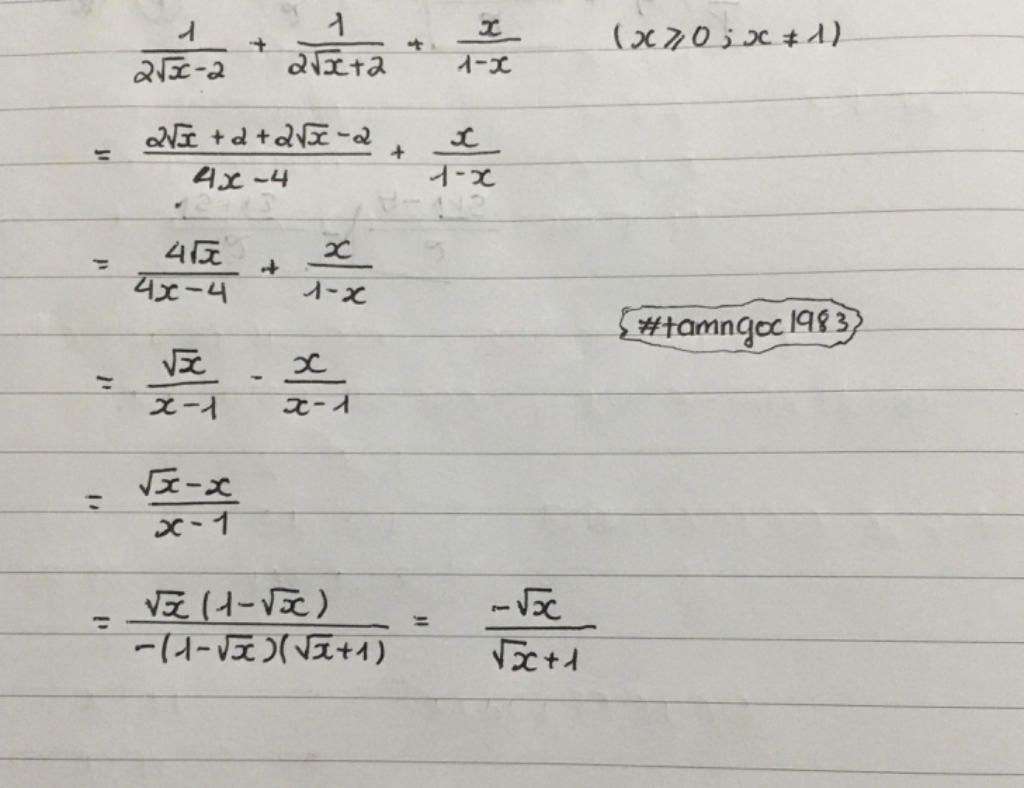 1/(2√x-2) + 1/(2√x+2) + x/(1-x) (x ⩾ 0 ; x ≠ 1)
= (2√x + 2 + 2√x - 2)/(4x - 4) + x/(1-x)
= 4√x/(4x-4) + x/(1-x)
#tamngoc1983
= √x/(x-1) - x/(x-1)
= (√x - x)/(x - 1)
= √x (1-√x)/(-(1-√x)(√x+1)) = -√x/(√x+1)